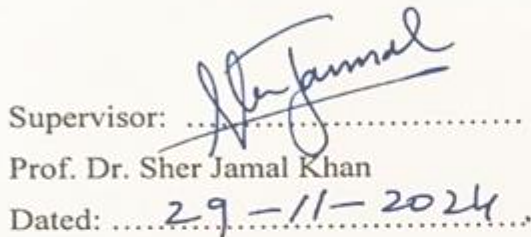 Supervisor: Sher Jamal
Prof. Dr. Sher Jamal Khan
Dated: 29-11-2024